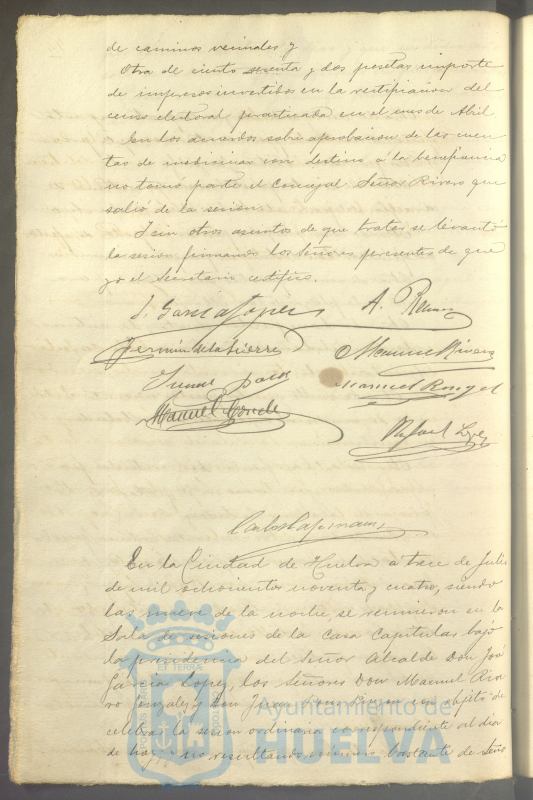 de caminos vecinales y
Otra de ciento sesenta y dos pesetas importe
de impresos invertidos en la rectificacion del
censo electoral practicada en el mes de Abril
En los acuerdos sobre aprobacion de las cuen
tas de medicinas con destino a la beneficencia
no tomó parte el Concejal Señor Rivero que
salió de la sesion.
Y sin otros asuntos de que tratar se levantó
la sesion firmando los Señores presentes de que
yo el Secretario certifico.
J. Garcia Lopez
A. Ramos
Fermin de la Sierra
Manuel Rivero
Manuel Rongel
Manuel Conde
Rafael Lopez
En la Ciudad de Huelva a trece de Julio
de mil ochocientos noventa y cuatro, siendo
las nueve de la noche, se reunieron en la
Sala de sesiones de la casa Capitular bajo
la presidencia del Señor Alcalde Don José
Garcia Lopez, los Señores Don Manuel Rive
ro Gonzalez y Don Juan con objeto de
celebrar la sesion ordinaria correspondiente al dia
de hoy y no resultando número bastante de Seño
Ayuntamiento de
HUELVA